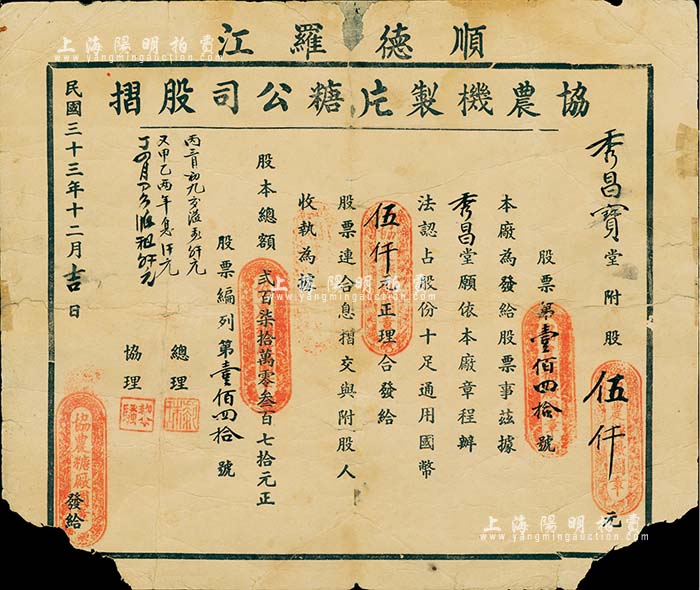 順德羅江
協農機製片糖公司股摺
秀昌寶堂附股伍仟元
股票第壹佰四拾號
本廠為發給股票事茲據
秀昌堂願依本廠章程辦
法認占股份十足通用國幣
伍仟元正理合發給
股票連合息摺交與附股人
收執為據
股本總額貳百柒拾萬零叁百七拾元正
股票編列第壹佰四拾號
總理
協理
又甲乙兩年息仟元
民國三十三年十二月吉日
協農糖廠圖章
發給
上海陽明拍賣
www.yangmingauction.com
上海陽明拍賣
www.yangmingauction.com
上海陽明拍賣
www.yangmingauction.com